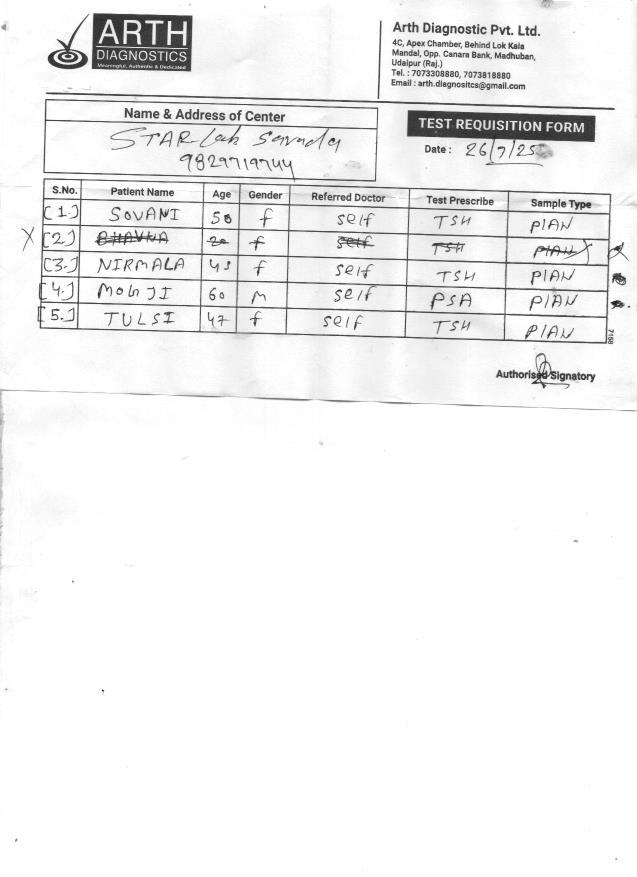 ARTH
DIAGNOSTICS
Meaningful, Authentic & Dedicated
Arth Diagnostic Pvt. Ltd.
4C, Apex Chamber, Behind Lok Kala
Mandal, Opp. Canara Bank, Madhuban,
Udaipur (Raj.)
Tel. : 7073308880, 7073818880
Email : arth.diagnositcs@gmail.com
Name & Address of Center
STAR Lab
9829719744
TEST REQUISITION FORM
Date : 26/7/25
S.No. Patient Name Age Gender Referred Doctor Test Prescribe Sample Type
[1.] SOVANI 50 f self TSH PlAN
X [2.] BHAVNA 20 f self TSH PlAN
[3.] NIRMALA 45 f self TSH PlAN
[4.] MOGJI 60 M self PSA PlAN
[5.] TULSI 47 f self TSH PlAN
7158
Authorised Signatory